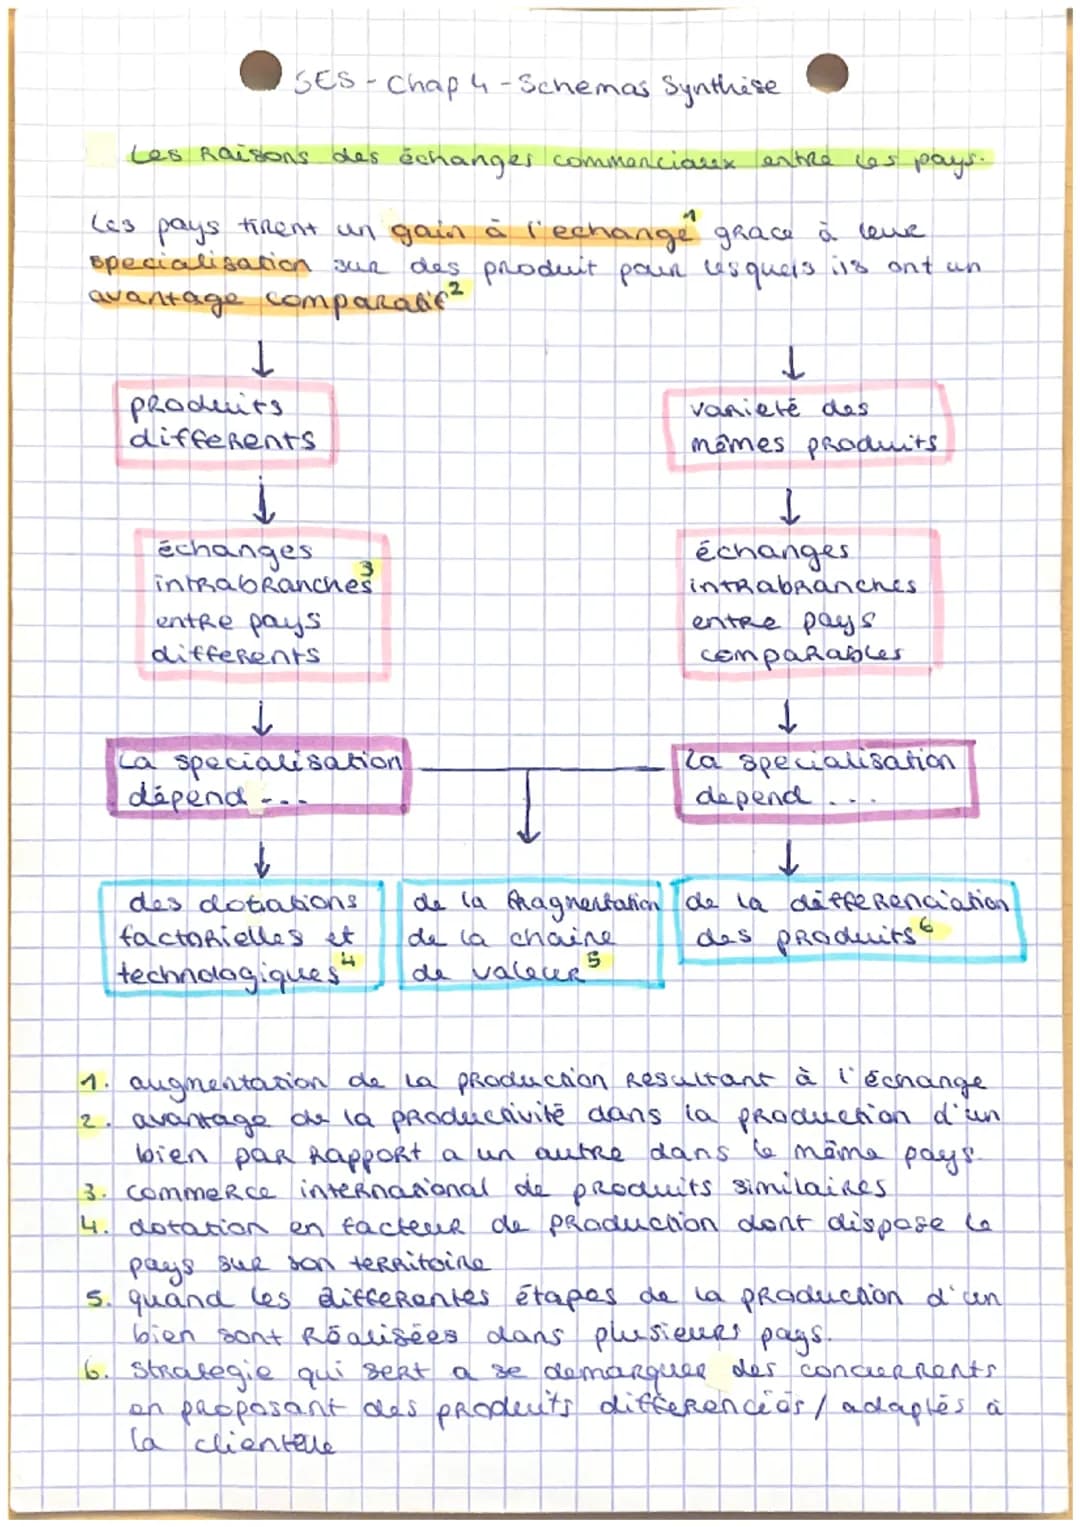 SES - Chap 4 - Schemas Synthèse
Les Raisons des échanges commerciaux entre les pays.
Les pays tirent un gain à l'echange¹ grace à leur
specialisation sur des produit pour lesquels ils ont un
avantage comparatif²
↓ ↓
produits
differents
varieté des
mêmes produits
↓ ↓
échanges
intrabranches³
entre pays
differents
échanges
intrabranches
entre pays
comparables
↓ ↓
La specialisation
dépend ...
La specialisation
depend ...
↓ ↓ ↓
des dotations
factorielles et
technologiques⁴
de la fragmentation
de la chaine
de valeur⁵
de la differenciation
des produits⁶
1. augmentation de la production resultant à l'échange
2. avantage de la productivité dans la production d'un
bien par rapport a un autre dans le même pays.
3. commerce international de produits similaires
4. dotation en facteur de production dont dispose le
pays sur son territoire
5. quand les differentes étapes de la production d'un
bien sont réalisées dans plusieurs pays.
6. strategie qui sert a se demarquer des concurrents
en proposant des produits differenciés / adaptés à
la clientelle